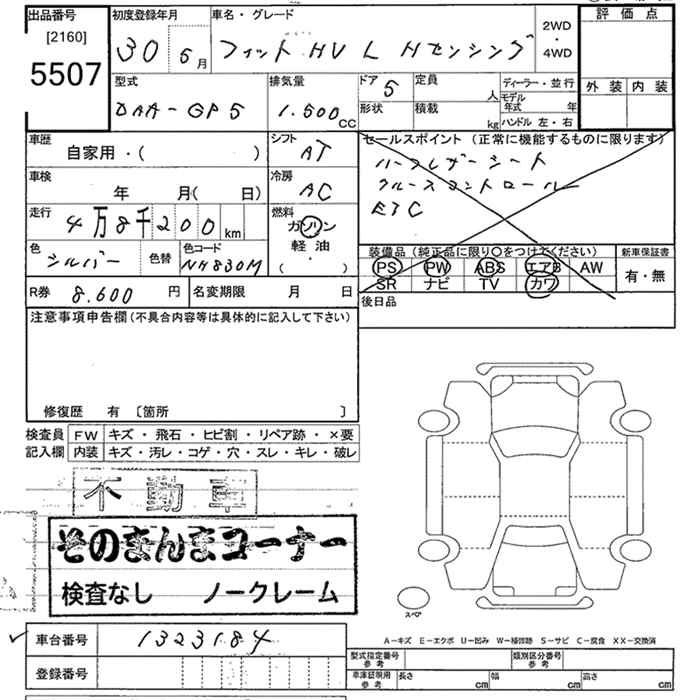 出品番号
[2160]
5507
初度登録年月
30 6月
車名・グレード
フィット HV L Hセンシング
2WD
・
4WD
評価点
外装 内装
型式
DAA-GP5
排気量
1.500cc
ドア 5
形状
定員 人
積載 kg
ディーラー・並行
モデル年式 年
ハンドル 左・右
車歴 自家用・( )
シフト AT
車検 年 月( 日)
冷房 AC
走行 4万8千200km
燃料
ガソリン
軽油
( ・ )
色 シルバー
色替
色コード NH830M
R券 8.600 円
名変期限 月 日
セールスポイント (正常に機能するものに限ります)
ハーフレザーシート
クルーズコントロール
ETC
装備品(純正品に限り○をつけてください)
PS PW ABS エアB AW
SR ナビ TV カワ
新車保証書
有・無
後日品
注意事項申告欄(不具合内容等は具体的に記入して下さい)
修復歴 有 〔箇所 〕
検査員記入欄
FW キズ・飛石・ヒビ割・リペア跡・×要
内装 キズ・汚レ・コゲ・穴・スレ・キレ・破レ
不動車
そのまんまコーナー
検査なし ノークレーム
スペア
✓ 車台番号 1323184
登録番号
A-キズ E-エクボ U-凹み W-補修跡 S-サビ C-腐食 XX-交換済
型式指定番号 参考
類別区分番号 参考
車庫証明用 参考 長さ cm 幅 cm 高さ cm